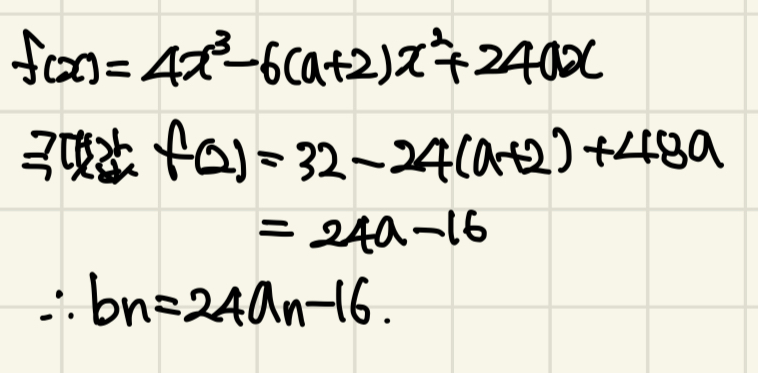 f(x) = 4x³ - 6(a+2)x² + 24ax
극댓값 f(2) = 32 - 24(a+2) + 48a
= 24a - 16
∴ bn = 24an - 16.